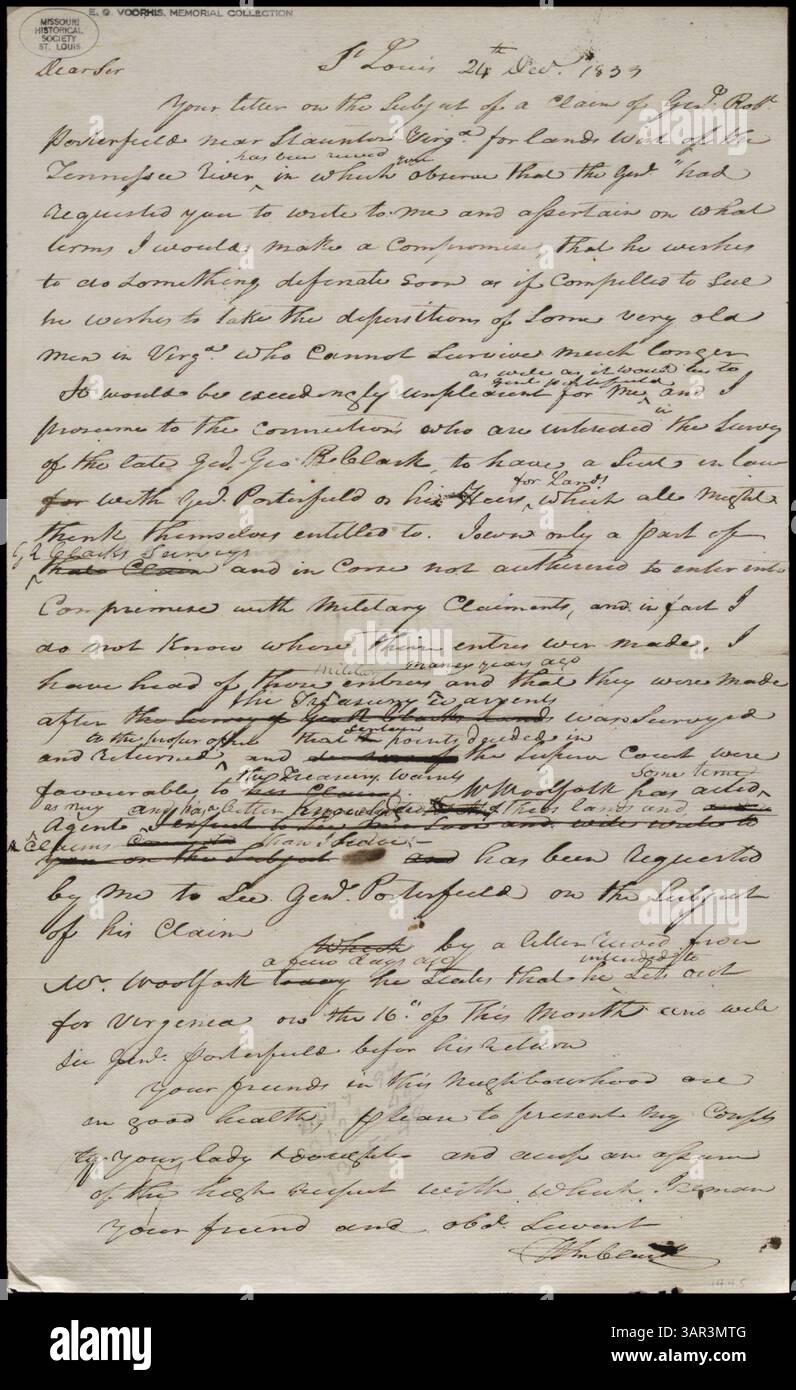 E. G. VOORHIS, MEMORIAL COLLECTION
MISSOURI
HISTORICAL
SOCIETY
ST. LOUIS
St Louis 24th Dec. 1833
Dear Sir
Your letter on the Subject of a Claim of Genl. Robt.
Porterfield near Staunton Virga. for lands West of the
has been recved
Tennessee River in which you observe that the Genl "had
requested you to write to me and assertain on what
terms I would make a Compromise, that he wishes
to do something definate soon as if Compelled to Sue
he wishes to take the depositions of Some very old
men in Virga. who Cannot Survive much longer
as well as it would be to
Genl Porterfield
It would be excedingly unplesent for me and I
in
presume to the Connections who are intersted the Survey
of the late Genl. Geo R Clark, to have a Suit in law
for Lands
for with Genl. Porterfield or his Heirs, which all might
think themselves entitled to. I own only a part of
G R Clarks Surveys
that Claim and in Corse not autherised to enter into
Comprimise with Military Claiments, and in fact I
do not Know where their entres wer made, I
military many years ago
have head of those entres and that they were made
the Treasury Warrents
after the Survey of Geo R Clarks Lands was Surveyed
to the proper office that certain points decided in
and returned and the Supirior Court were
the Treasury Warnts
favourable to his Claim. Mr Woolfolk has acted
some time
as my and has a better Knowledge of thos lands and
Agent I expect to See him Soon and will write to
Claims than I have
you on the Subject and has been requested
by me to See Genl. Porterfield on the Subject
of his Claim
Which by a letter recved from
a few days ago intended to
Mr. Woolfolk today he States that he Sets out
for Virginia on the 16th of this Month and will
See Genl. Porterfield befor his return
Your friends in this Neighbourhood are
in good health, please to present my Compts
to your lady & and accept an assurance
of the high respect with which I reman
Your friend and obd. Servent
Wm Clark
1445
alamy
Image ID: 3AR3MTG
www.alamy.com